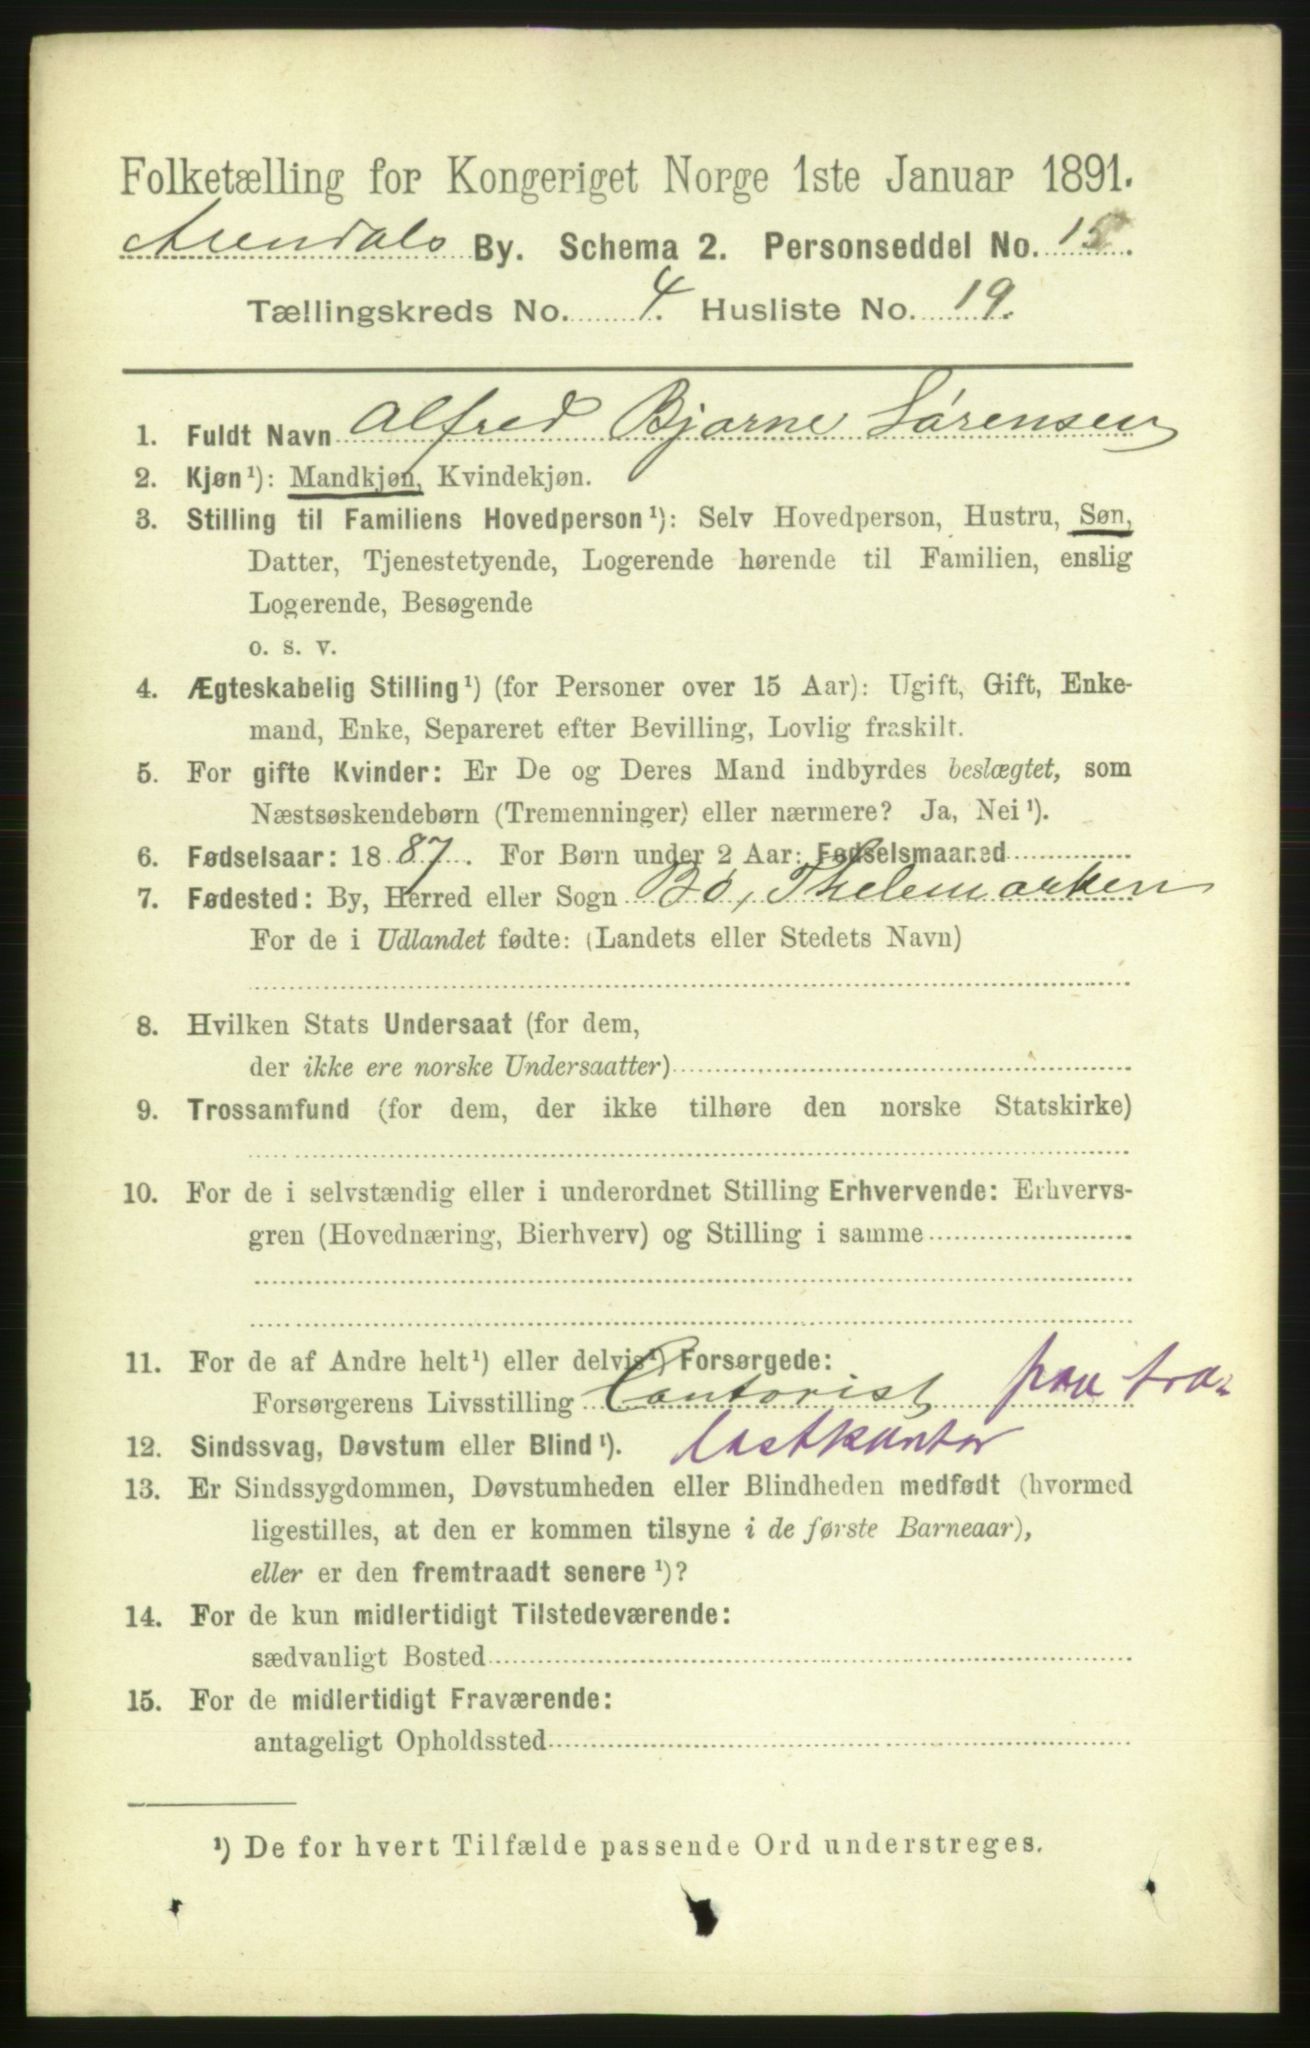 Folketælling for Kongeriget Norge 1ste Januar 1891.
Arendals By. Schema 2. Personseddel No. 15.
Tællingskreds No. 4. Husliste No. 19.
1. Fuldt Navn Alfred Bjarne Sørensen
2. Kjøn¹): Mandkjøn, Kvindekjøn.
3. Stilling til Familiens Hovedperson¹): Selv Hovedperson, Hustru, Søn,
Datter, Tjenestetyende, Logerende hørende til Familien, enslig
Logerende, Besøgende
o. s. v.
4. Ægteskabelig Stilling¹) (for Personer over 15 Aar): Ugift, Gift, Enke-
mand, Enke, Separeret efter Bevilling, Lovlig fraskilt.
5. For gifte Kvinder: Er De og Deres Mand indbyrdes beslægtet, som
Næstsøskendebørn (Tremenninger) eller nærmere? Ja, Nei¹).
6. Fødselsaar: 1887. For Børn under 2 Aar: Fødselsmaaned
7. Fødested: By, Herred eller Sogn Bø, Thelemarken
For de i Udlandet fødte: (Landets eller Stedets Navn)
8. Hvilken Stats Undersaat (for dem,
der ikke ere norske Undersaatter)
9. Trossamfund (for dem, der ikke tilhøre den norske Statskirke)
10. For de i selvstændig eller i underordnet Stilling Erhvervende: Erhvervs-
gren (Hovednæring, Bierhverv) og Stilling i samme
11. For de af Andre helt¹) eller delvis¹) Forsørgede:
Forsørgerens Livsstilling Contorist paa tra-
12. Sindssvag, Døvstum eller Blind¹). lastkontor
13. Er Sindssygdommen, Døvstumheden eller Blindheden medfødt (hvormed
ligestilles, at den er kommen tilsyne i de første Barneaar),
eller er den fremtraadt senere¹)?
14. For de kun midlertidigt Tilstedeværende:
sædvanligt Bosted
15. For de midlertidigt Fraværende:
antageligt Opholdssted
¹) De for hvert Tilfælde passende Ord understreges.